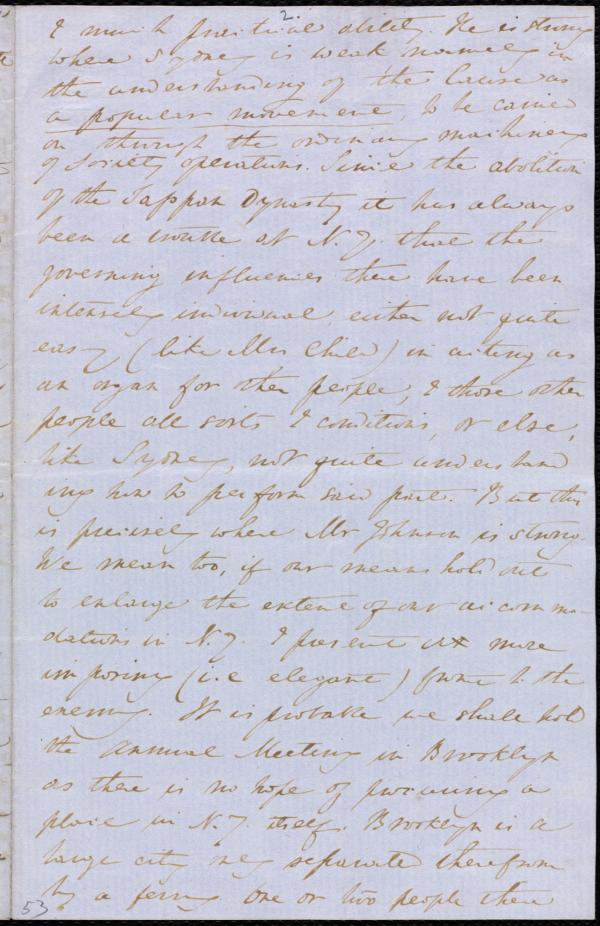 2.
& much practical ability. He is strong
where Sydney is weak namely in
the understanding of the Cause as
a popular movement, to be carried
on through the ordinary machinery
of Society operations. Since the abolition
of the Tappan Dynasty it has always
been a trouble at N. Y. that the
governing influences there have been
intensely individual, either not quite
easy (like Mrs Child) in acting as
an organ for other people, & those other
people all sorts & conditions, or else,
like Sydney, not quite understand
ing how to perform said part. But this
is precisely where Mr Johnson is strong.
We mean too, if our means hold out
to enlarge the extent of our accommo-
dations in N. Y. & present a more
imposing (i.e elegant) front to the
enemy. It is probable we shall hold
the Annual Meeting in Brooklyn
as there is no hope of procuring a
place in N. Y. itself. Brooklyn is a
large city only separated therefrom
by a ferry. One or two people there
53